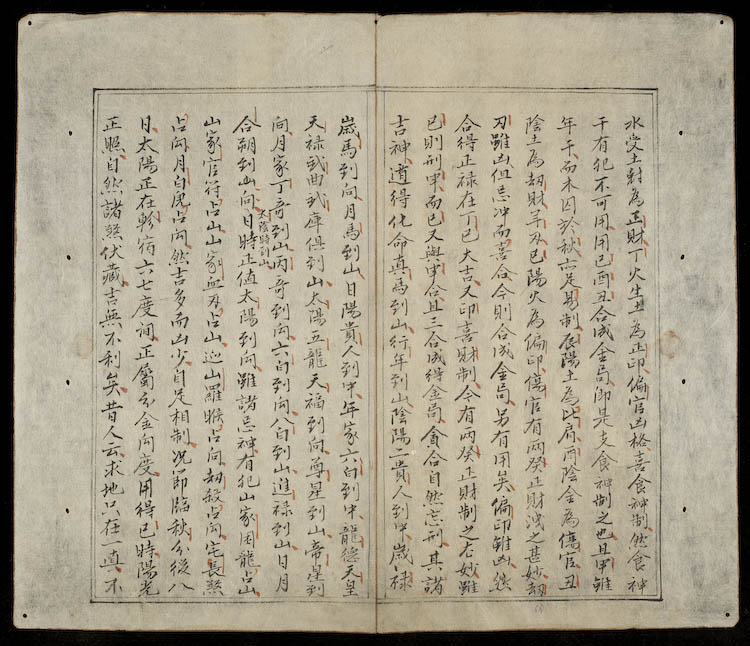 水受土尅為正財丁火生土為正印偏官凶格喜食神制然食神
干有犯不可用用巳酉丑合成金局即是支食神制之也且甲雖
年干而木囚於秋亦足易制辰陽土為比肩用陰金為傷官丑
陰土為刼財羊刃巳陽火為偏印傷官有兩癸正財洩之甚妙刼
刃雖凶但忌冲而喜合今則合成金局另有用矣偏印雖凶然
合得正禄在丁巳大吉又印喜財制今有兩癸正財制之尤妙雖
巳則刑申而巳又與申合且三合成得金局貪合自然忘刑其諸
吉神道得化命真馬到山行年到山陰陽二貴人到中歲禄
歲馬到向月馬到山日陽貴人到中年家六白到中龍德天皇
天禄武曲武庫俱到山太陽五龍天福到向尊星到山帝星到
向月家丁奇到山丙奇到向六白到向八白到山進禄到山日月
合朔到山向日時正值太陽到向雖諸忌神有犯山家困龍占山
太陰時到山
山家官符占山山家血刃占山廵山羅睺占向刼殺占向宅長煞
占向月白虎占向然吉多而凶少自足相制况節臨秋分後八
日太陽正在軫宿六七度詢正屬分金向度用得巳時陽光
正照自然諸煞伏藏吉無不利矣昔人云求地只在一真不